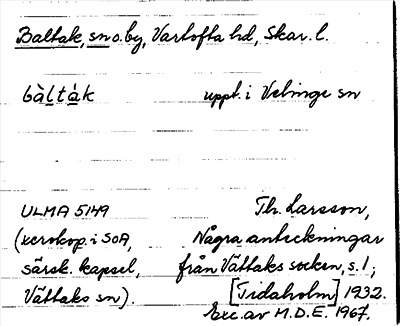 Baltak, sn o. by, Vartofta hd, Skar. l.
bàltàk uppt. i Velinge sn
ULMA 5149 Th. Larsson,
(xerokop. i SOA, Några anteckningar
särsk. kapsel, från Vättaks socken, s. 1;
Vättaks sn). [Tidaholm] 1932.
Exc. av M.D.E. 1967.